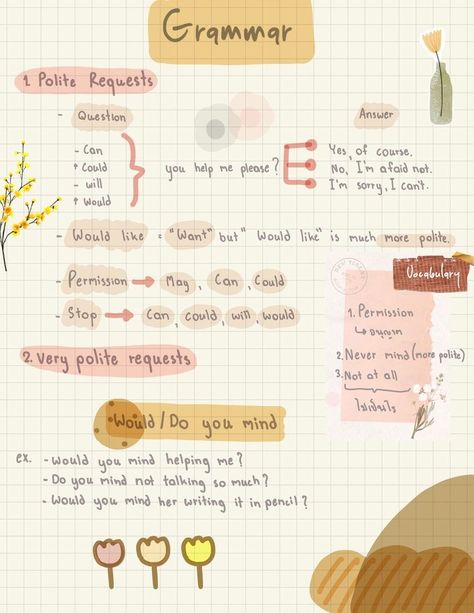 Grammar
1. Polite Requests
- Question
Answer
- Can
↑ Could
- will
↑ would
you help me please?
Yes, of course.
No, I'm afaid not.
I'm sorry, I can't.
- Would like = "Want" but "Would like" is much more polite.
- Permission → May, Can, Could
- Stop → Can, could, will, would
Vocabulary
1. Permission
↳ อนุญาต
2. Never mind (more polite)
3. Not at all
ไม่เป็นไร
2. Very polite requests
Would/Do you mind
ex. - Would you mind helping me?
- Do you mind not talking so much?
- Would you mind her writing it in pencil?